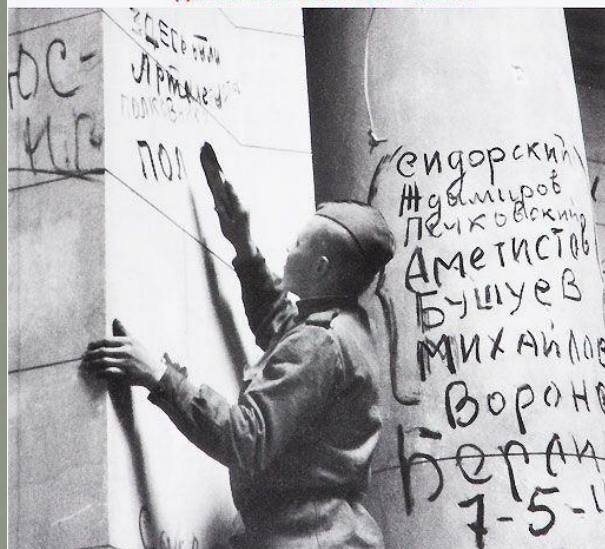 ЮС-
И.Г.
ЗДЕСЬ были
Артиллер
полковник
ПОЛ
Сидорский
Ждымиров
Печковский
Аметистов
Бушуев
Михайлов
Ворон
Берли
7-5-